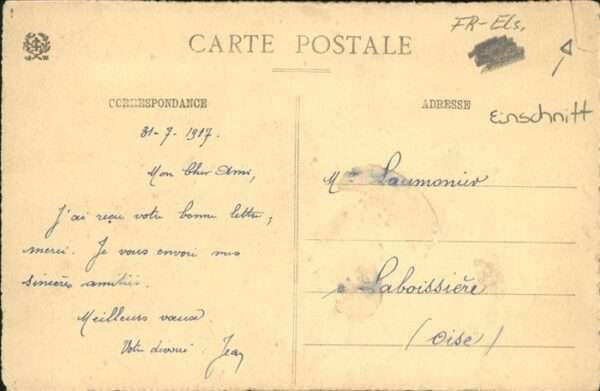 FR-Els.
CARTE POSTALE
CORRESPONDANCE
ADRESSE
Einschnitt
31-7-1917.
Mon Cher Ami,
J'ai reçu votre bonne lettre,
merci. Je vous envoie mes
sincères amitiés.
Meilleurs vœux.
Votre dévoué. Jean
Mr Laumonier
à Laboissière
(Oise)